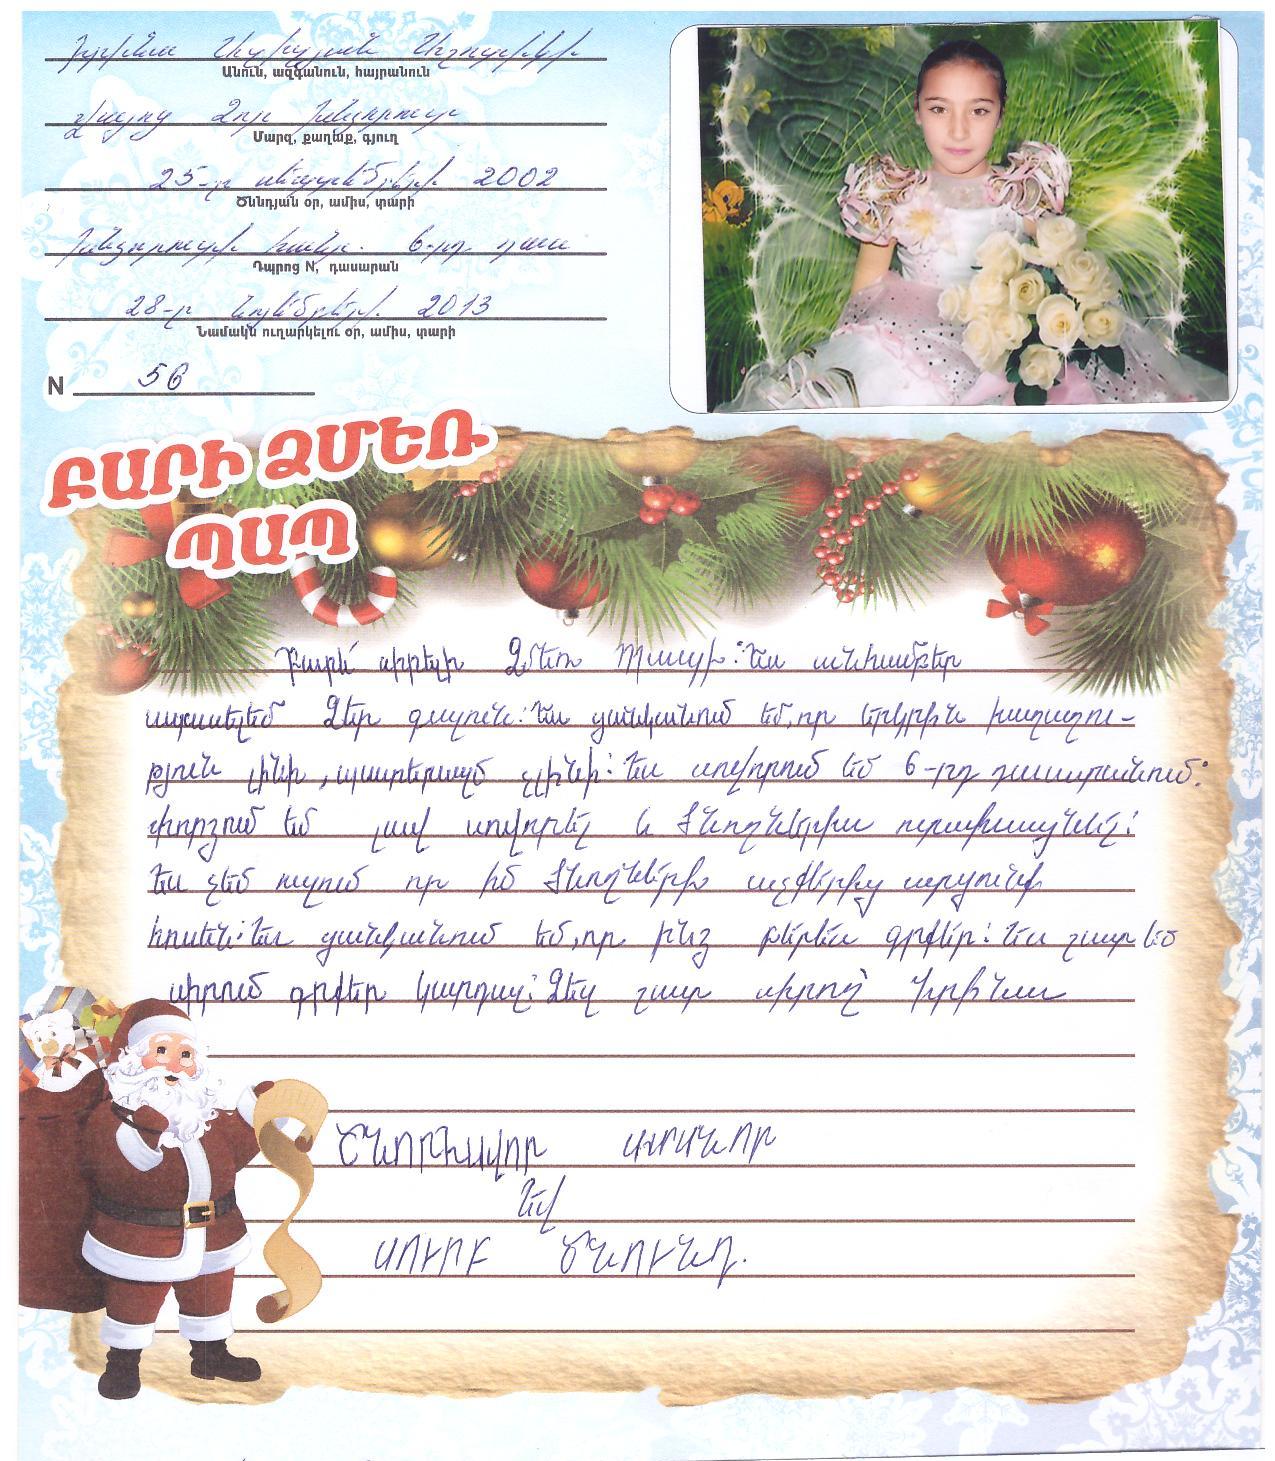 Իրինա
Անուն, ազգանուն, հայրանուն
Վայոց Ձոր Խնձորուտ
Մարզ, քաղաք, գյուղ
25-ը սեպտեմբերի 2002
Ծննդյան օր, ամիս, տարի
Խնձորուտի 6-րդ դաս
Դպրոց N, դասարան
28-ը նոյեմբերի 2013
Նամակն ուղարկելու օր, ամիս, տարի
N 56
ԲԱՐԻ ՁՄԵՌ
ՊԱՊ
Բարև՛ սիրելի Ձմեռ Պապի: Ես անհամբեր
սպասել եմ Ձեր գալուն: Ես ցանկանում եմ, որ երկրին խաղաղու-
թյուն լինի, պատերազմ չլինի: Ես սովորում եմ 6-րդ դասարանում:
Փորձում եմ լավ սովորել և ծնողներիս ուրախացնել:
Ես չեմ ուզում որ իմ ծնողների աչքերից արցունք
հոսեն: Ես ցանկանում եմ, որ ինձ բերես գրքեր: Ես շատ եմ
սիրում գրքեր կարդալ: Ձեզ շատ սիրող՝ Իրինա
ՇՆՈՐՀԱՎՈՐ ԱՄԱՆՈՐ
ԵՎ
ՍՈՒՐԲ ԾՆՈՒՆԴ.